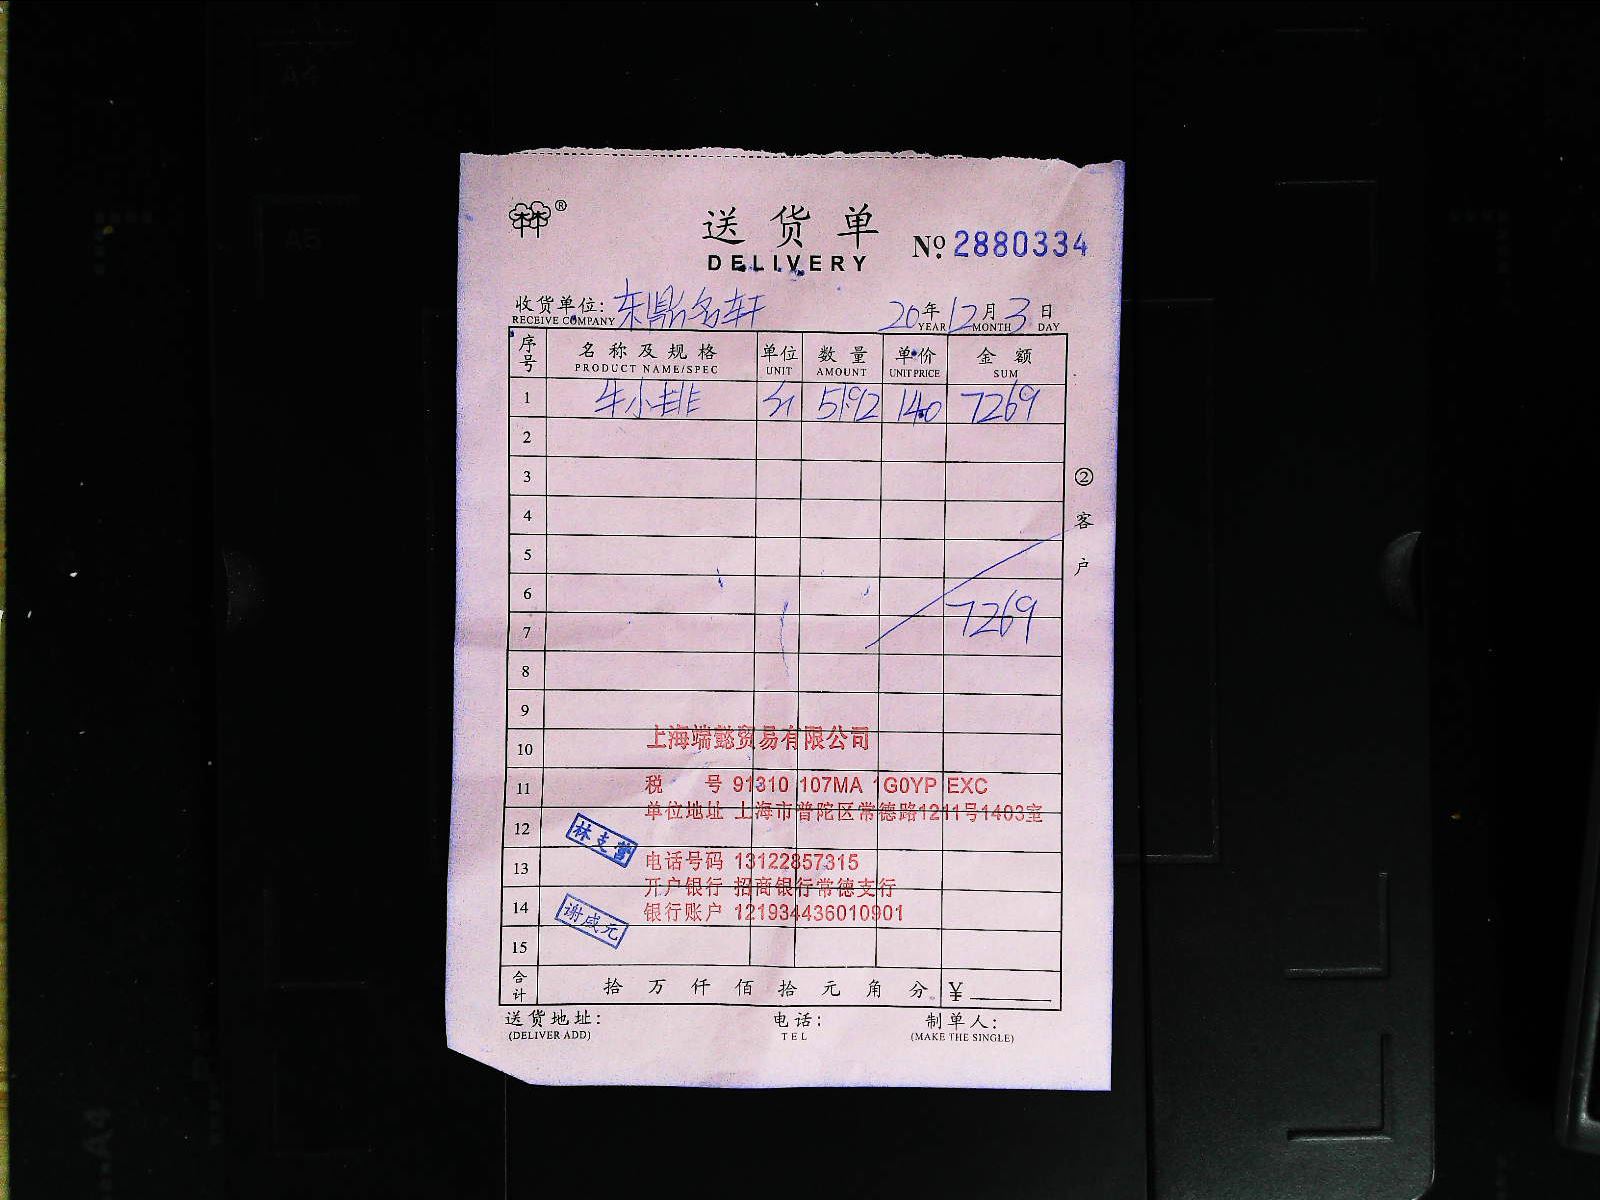 ®
送货单
DELIVERY
No 2880334
收货单位: 东鼎名轩 20 年 12 月 3 日
RECEIVE COMPANY YEAR MONTH DAY
序号 名称及规格 单位 数量 单价 金额
PRODUCT NAME/SPEC UNIT AMOUNT UNIT PRICE SUM
1 牛小排 5192 140 7269
2
3
4
5
6
7 7269
8
9
10
11
12
13
14
15
② 客户
上海端懿贸易有限公司
税 号 91310 107MA 1G0YP EXC
单位地址 上海市普陀区常德路1211号1403室
电话号码 13122857315
开户银行 招商银行常德支行
银行账户 121934436010901
林支营
谢威元
合计 拾 万 仟 佰 拾 元 角 分 ¥
送货地址: 电话: 制单人:
(DELIVER ADD) TEL (MAKE THE SINGLE)
A4
A5